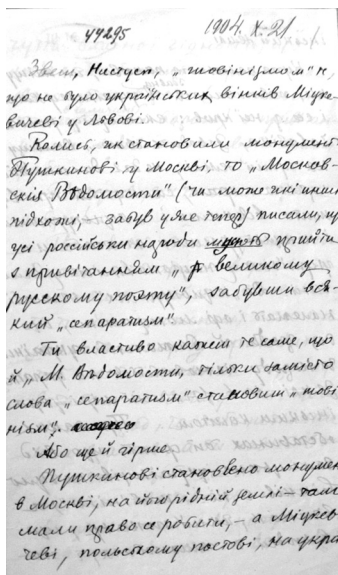 44295
1904. X. 21
Звеш, Настусю, „шовінізмом" те,
що не було українських вінків Міцке-
вичеві у Львові.
Колись, як становили монумент
Пушкинові у Москві, то „Москов-
скія Вѣдомости" (чи може які инші
підхожі, – забув уже тепер) писали, що
усі російськи народи мусять прийти
з привітаннями „великому
русскому поэту", забувши вся-
кий „сепаратизм".
Ти властиво кажеш те саме, що
й „М Вѣдомости, тільки замісто
слова „сепаратизм" становиш „шові
нізм".
Або ще й гірше.
Пушкинові становлено монумен
в Москві, на його рідній землі – там
мали право се робити, – а Міцкев
чеві, польському поетові, на укра